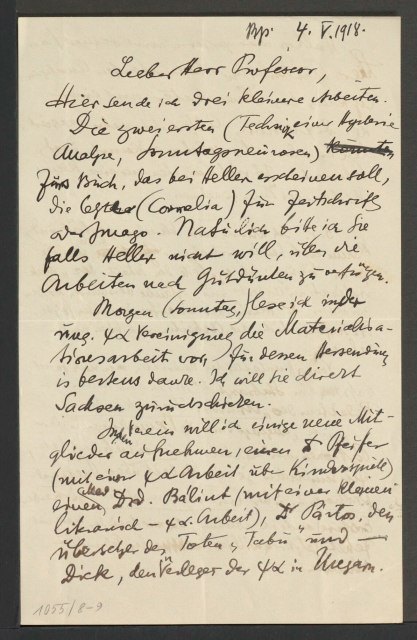 Bp. 4. V. 1918.
Lieber Herr Professor,
Hier sende ich drei kleinere Arbeiten.
Die zwei ersten (Technik einer Hysterie
Analyse, Sonntagsneurosen)
fürs Buch, das bei Heller erscheinen soll,
die letzte (Cornelia) für Zeitschrift
oder Imago. Natürlich bitte ich Sie
falls Heller nicht will, über die
Arbeiten nach Gutdünken zu verfügen.
Morgen (Sonntag,) lese ich in der
ung. ψα Vereinigung die Materialisa-
tionsarbeit vor, für deren Versendung
ich bestens danke. Ich will sie direkt
Sachsen zurückschicken.
Im Verein will ich einige neue Mit-
glieder aufnehmen, einen Dr Pfeifer
(mit einer ψα Arbeit über Kinderspiele)
einen Med Drd. Bálint (mit einer kleinen
literarisch - ψα. Arbeit), Dr Pártos, den
Übersetzer des "Totem u Tabu" und —
Dick, den Verleger der ψα in Ungarn.
1055/8-9